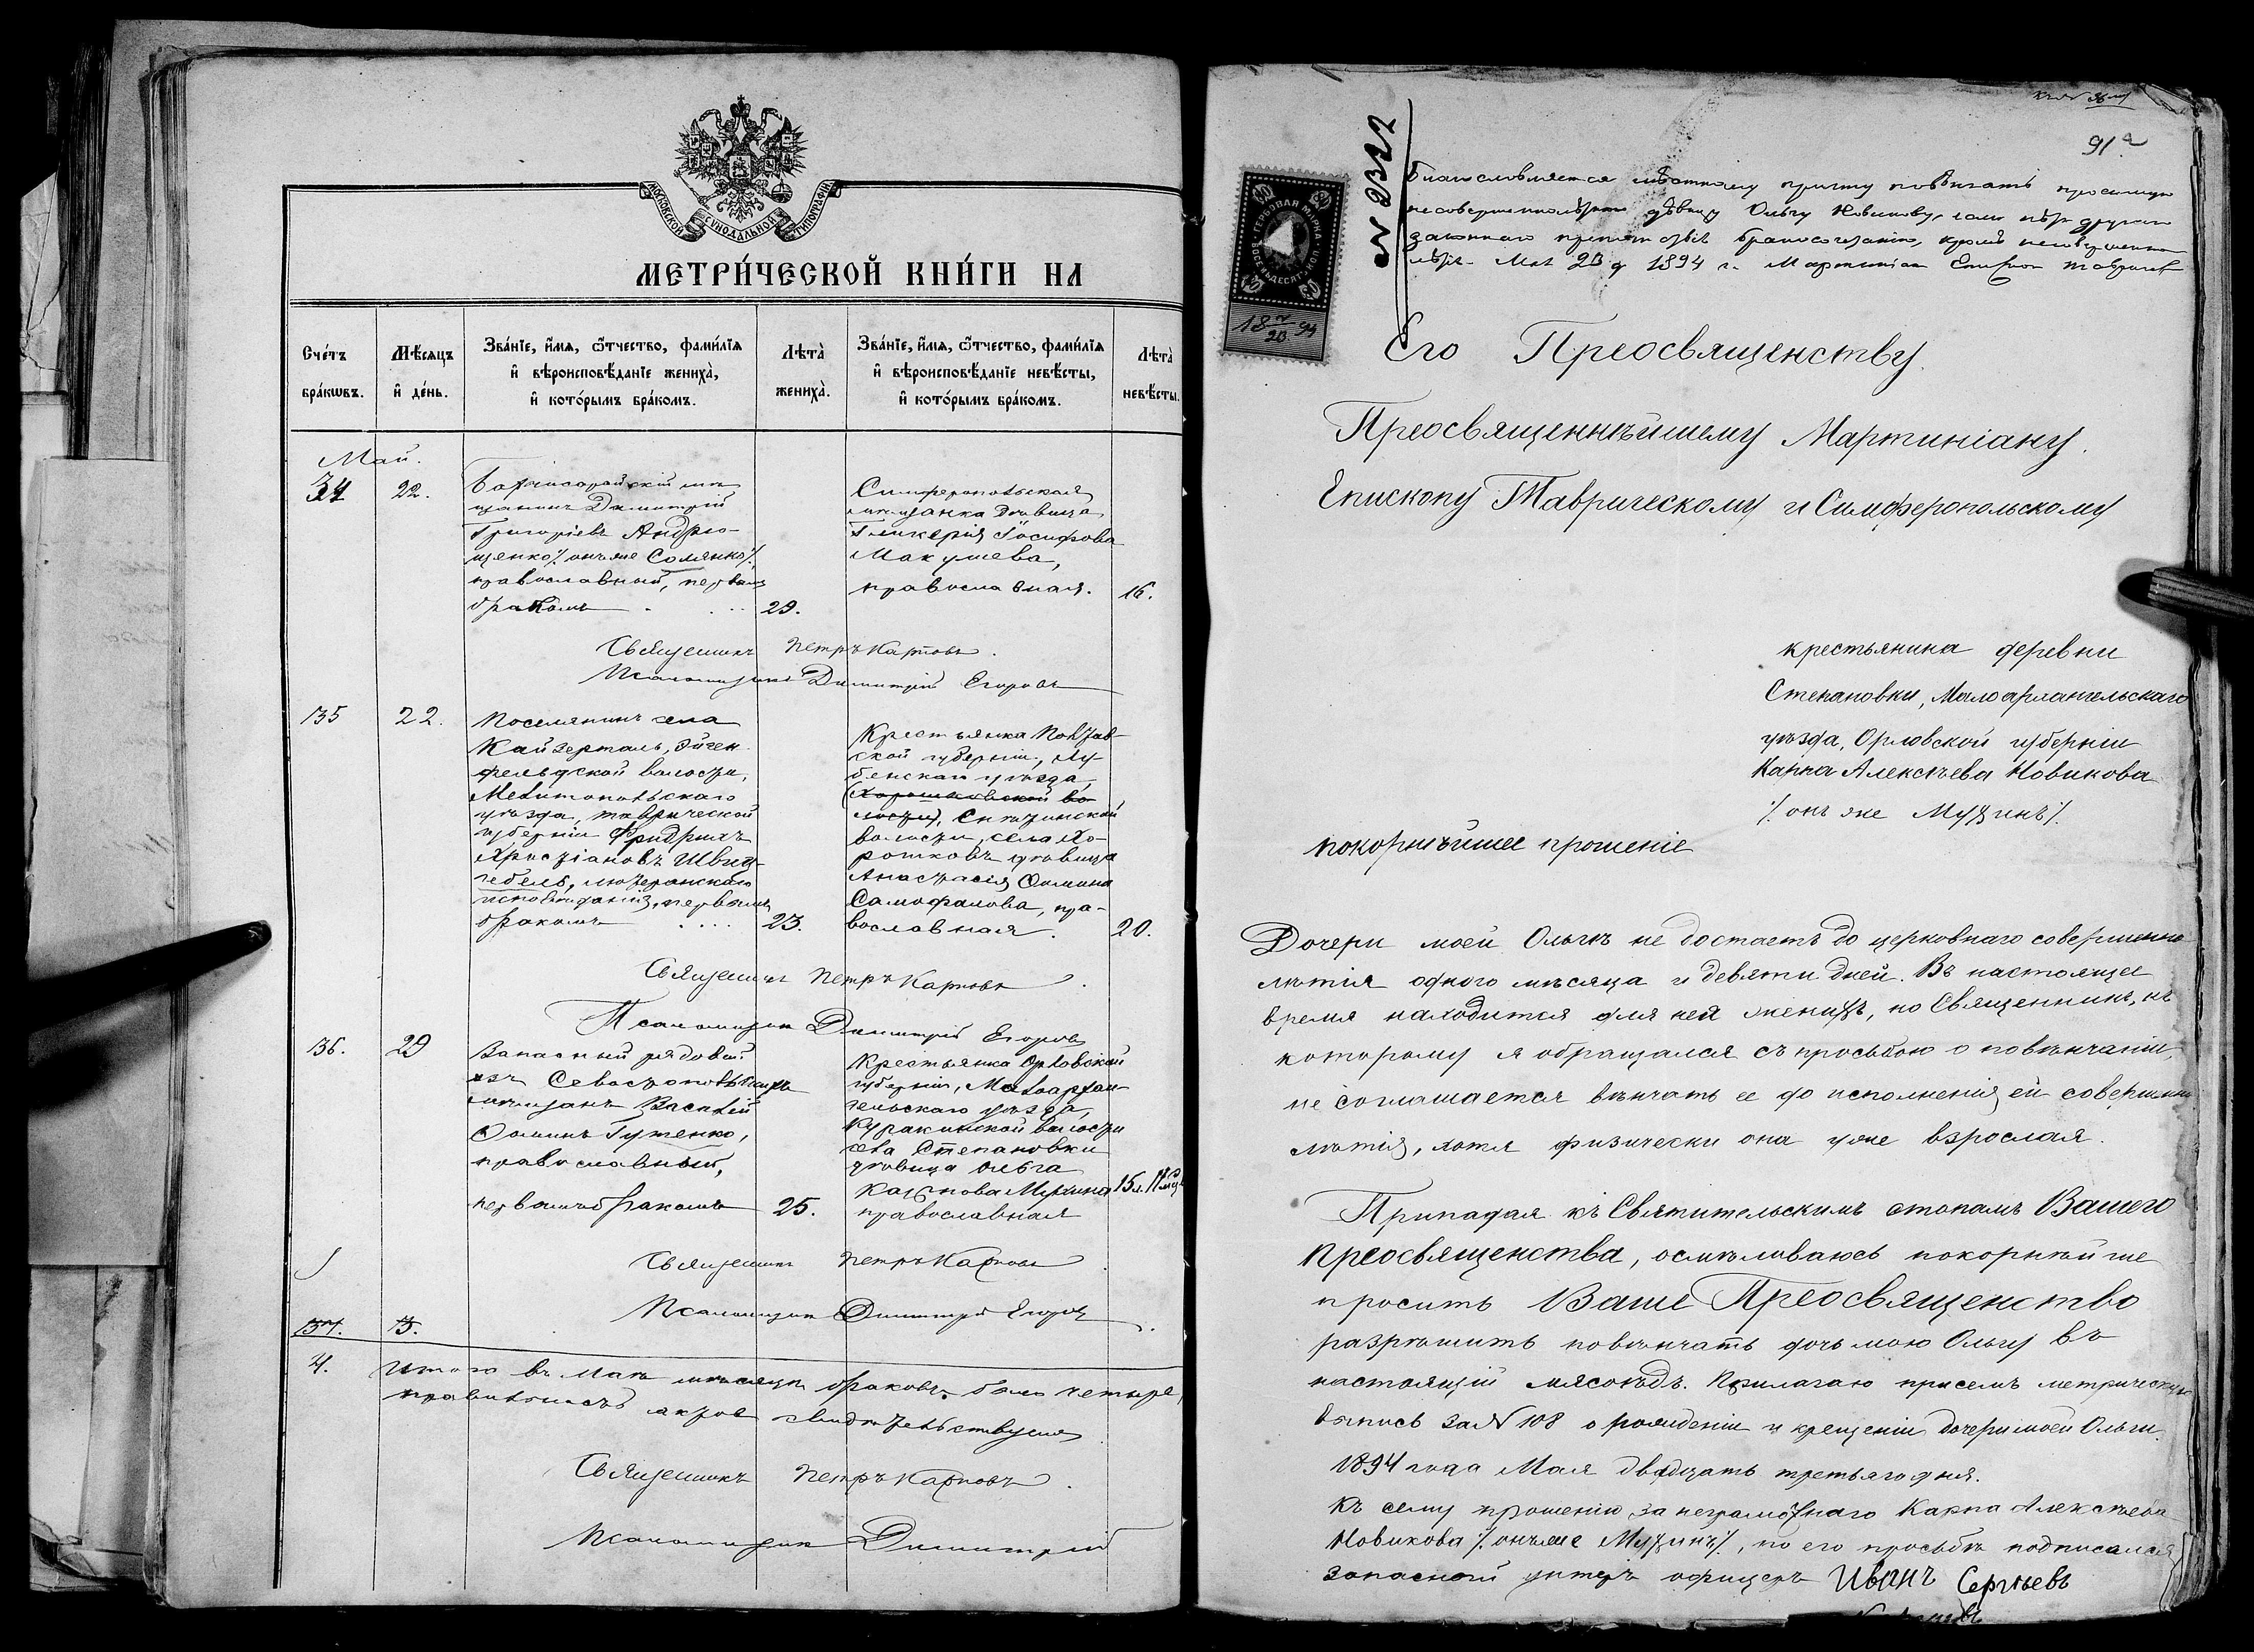 МОСКОВСКОЙ СѴНОДАЛЬНОЙ ТИПОГРАФІИ
МЕТРИ́ЧЕСКОЙ КНИ́ГИ НА
Сче́тъ бра́кѡвъ.
Мѣ́сяцъ и҆ де́нь.
Зва́нїе, и҆́мѧ, ѻ҆́тчество, фами́лїѧ
и҆ вѣроисповѣ́данїе жениха̀,
и҆ кото́рымъ бра́комъ.
Лѣта̀ жениха̀.
Зва́нїе, и҆́мѧ, ѻ҆́тчество, фами́лїѧ
и҆ вѣроисповѣ́данїе невѣ́сты,
и҆ кото́рымъ бра́комъ.
Лѣта̀ невѣ́сты.
Май.
34
22.
Бахчисарайскій мѣ
щанинъ Димитрій
Григоріевъ Андрю-
щенко ·/. онъ же Солянко ·/.
православный, первымъ
бракомъ
29.
Симферопольская
мѣщанка дѣвица
Гликерія Іосифова
Макушева,
православная.
16.
Священникъ Петръ Карповъ.
Псаломщикъ Димитрій Егоровъ
135
22.
Поселянинъ села
Кайзерталь, Эйген-
фельдской волости,
Мелитопольскаго
уѣзда, Таврической
губерніи Фридрихъ
Христіановъ Швид-
гебель, лютеранскаго
исповѣданія, первымъ
бракомъ
23.
Крестьянка Полтав-
ской губерніи, Лу-
бенскаго уѣзда,
волости, села Хо-
рошковъ дѣвица
Анастасія Ѳомина
Самофалова, пра-
вославная.
20.
Священникъ Петръ Карповъ.
Псаломщикъ Димитрій Егоровъ
136.
29
Запасный рядовой
изъ Севастопольскихъ
мѣщанъ Василій
Ѳоминъ Гутенко,
православный,
первымъ бракомъ
25.
Крестьянка Орловской
губерніи, Малоархан-
гельскаго уѣзда,
Куракинской волости
села Степановки
дѣвица Ольга
Карпова Мухина
православная
Священникъ Петръ Карповъ
Псаломщикъ Димитрій Егоровъ
137.
4.
Итого въ Маѣ мѣсяцѣ браковъ было четыре,
правильность актовъ свидѣтельствуемъ
Священникъ Петръ Карповъ.
Псаломщикъ Димитрій
91
N 2322
ГЕРБОВАЯ МАРКА
ВОСЕМЬДЕСЯТ КОП
80
Благословляется мѣстному причту повѣнчать просимую
несовершеннолѣтнюю дѣвицу Ольгу Новикову, если нѣтъ другихъ
законныхъ препятствій бракосочетанію, кромѣ несовершенно
лѣтія. Мая 23 д 1894 г. Мартиніанъ Епископ Таврическ
Его Преосвященству
Преосвященнѣйшему Мартиніану.
Епископу Таврическому и Симферопольскому
крестьянина деревни
Степановки, Малоархангельскаго
уѣзда, Орловской губерніи
Карпа Алексѣева Новикова
·/. онъ же Мухинъ ·/.
покорнѣйшее прошеніе
Дочери моей Ольгѣ не достаетъ до церковнаго совершенно
лѣтія одного мѣсяца и девяти дней. Въ настоящее
время находится для ней женихъ, но Священникъ, къ
которому я обращался съ просьбою о повѣнчаніи,
не соглашается вѣнчать ее до исполненія ей совершенно
лѣтія, хотя физически она уже взрослая.
Припадая къ Святительскимъ стопамъ Вашего
Преосвященства, осмѣливаюсь покорнѣйше
просить Ваше Преосвященство
разрѣшить повѣнчать дочь мою Ольгу въ
настоящій мясоѣдъ. Прилагаю присемъ метрическую
выпись за N 108 о рожденіи и крещеніи дочери моей Ольги.
1894 года Мая двадцать третьяго дня.
Къ сему прошенію, за неграмотнаго Карпа Алексѣева
Новикова ·/. онъ же Мухинъ ·/., по его просьбѣ подписался
запасной унтеръ офицеръ Иванъ Сергѣевъ